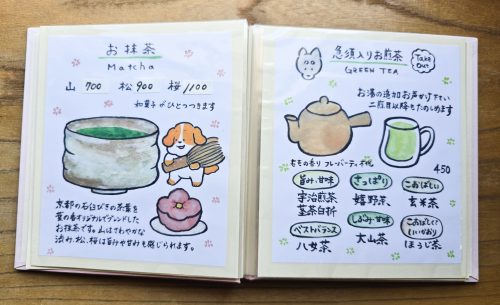 お抹茶
Matcha
山 700 松 900 桜 1100
和菓子がひとつつきます
京都の石臼びきの茶葉を
葉の香オリジナルでブレンドした
お抹茶です。山はさわやかな
渋み、松、桜は旨みや甘みも感じられます。
急須入りお煎茶
GREEN TEA
Take Out
お湯の追加お声がけ下さい
二煎目以降もたのしめます
ももの香り フレーバーティ
450
旨み・甘味
宇治煎茶
茎茶白折
さっぱり
嬉野茶
こおばしい
玄米茶
ベストバランス
八女茶
しぶみ・甘味
大山茶
こおばしくて
いいかおり
ほうじ茶